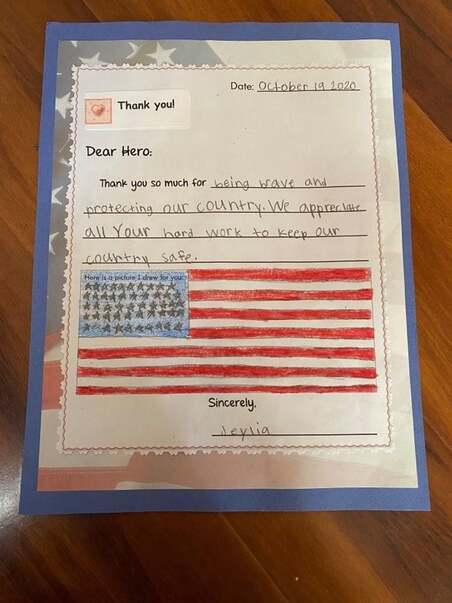 Date: October 19 2020
Thank you!
Dear Hero:
Thank you so much for being wave and
protecting our country. We appreciate
all Your hard work to keep our
country safe.
Here is a picture I drew for you:
Sincerely,
Jeylia